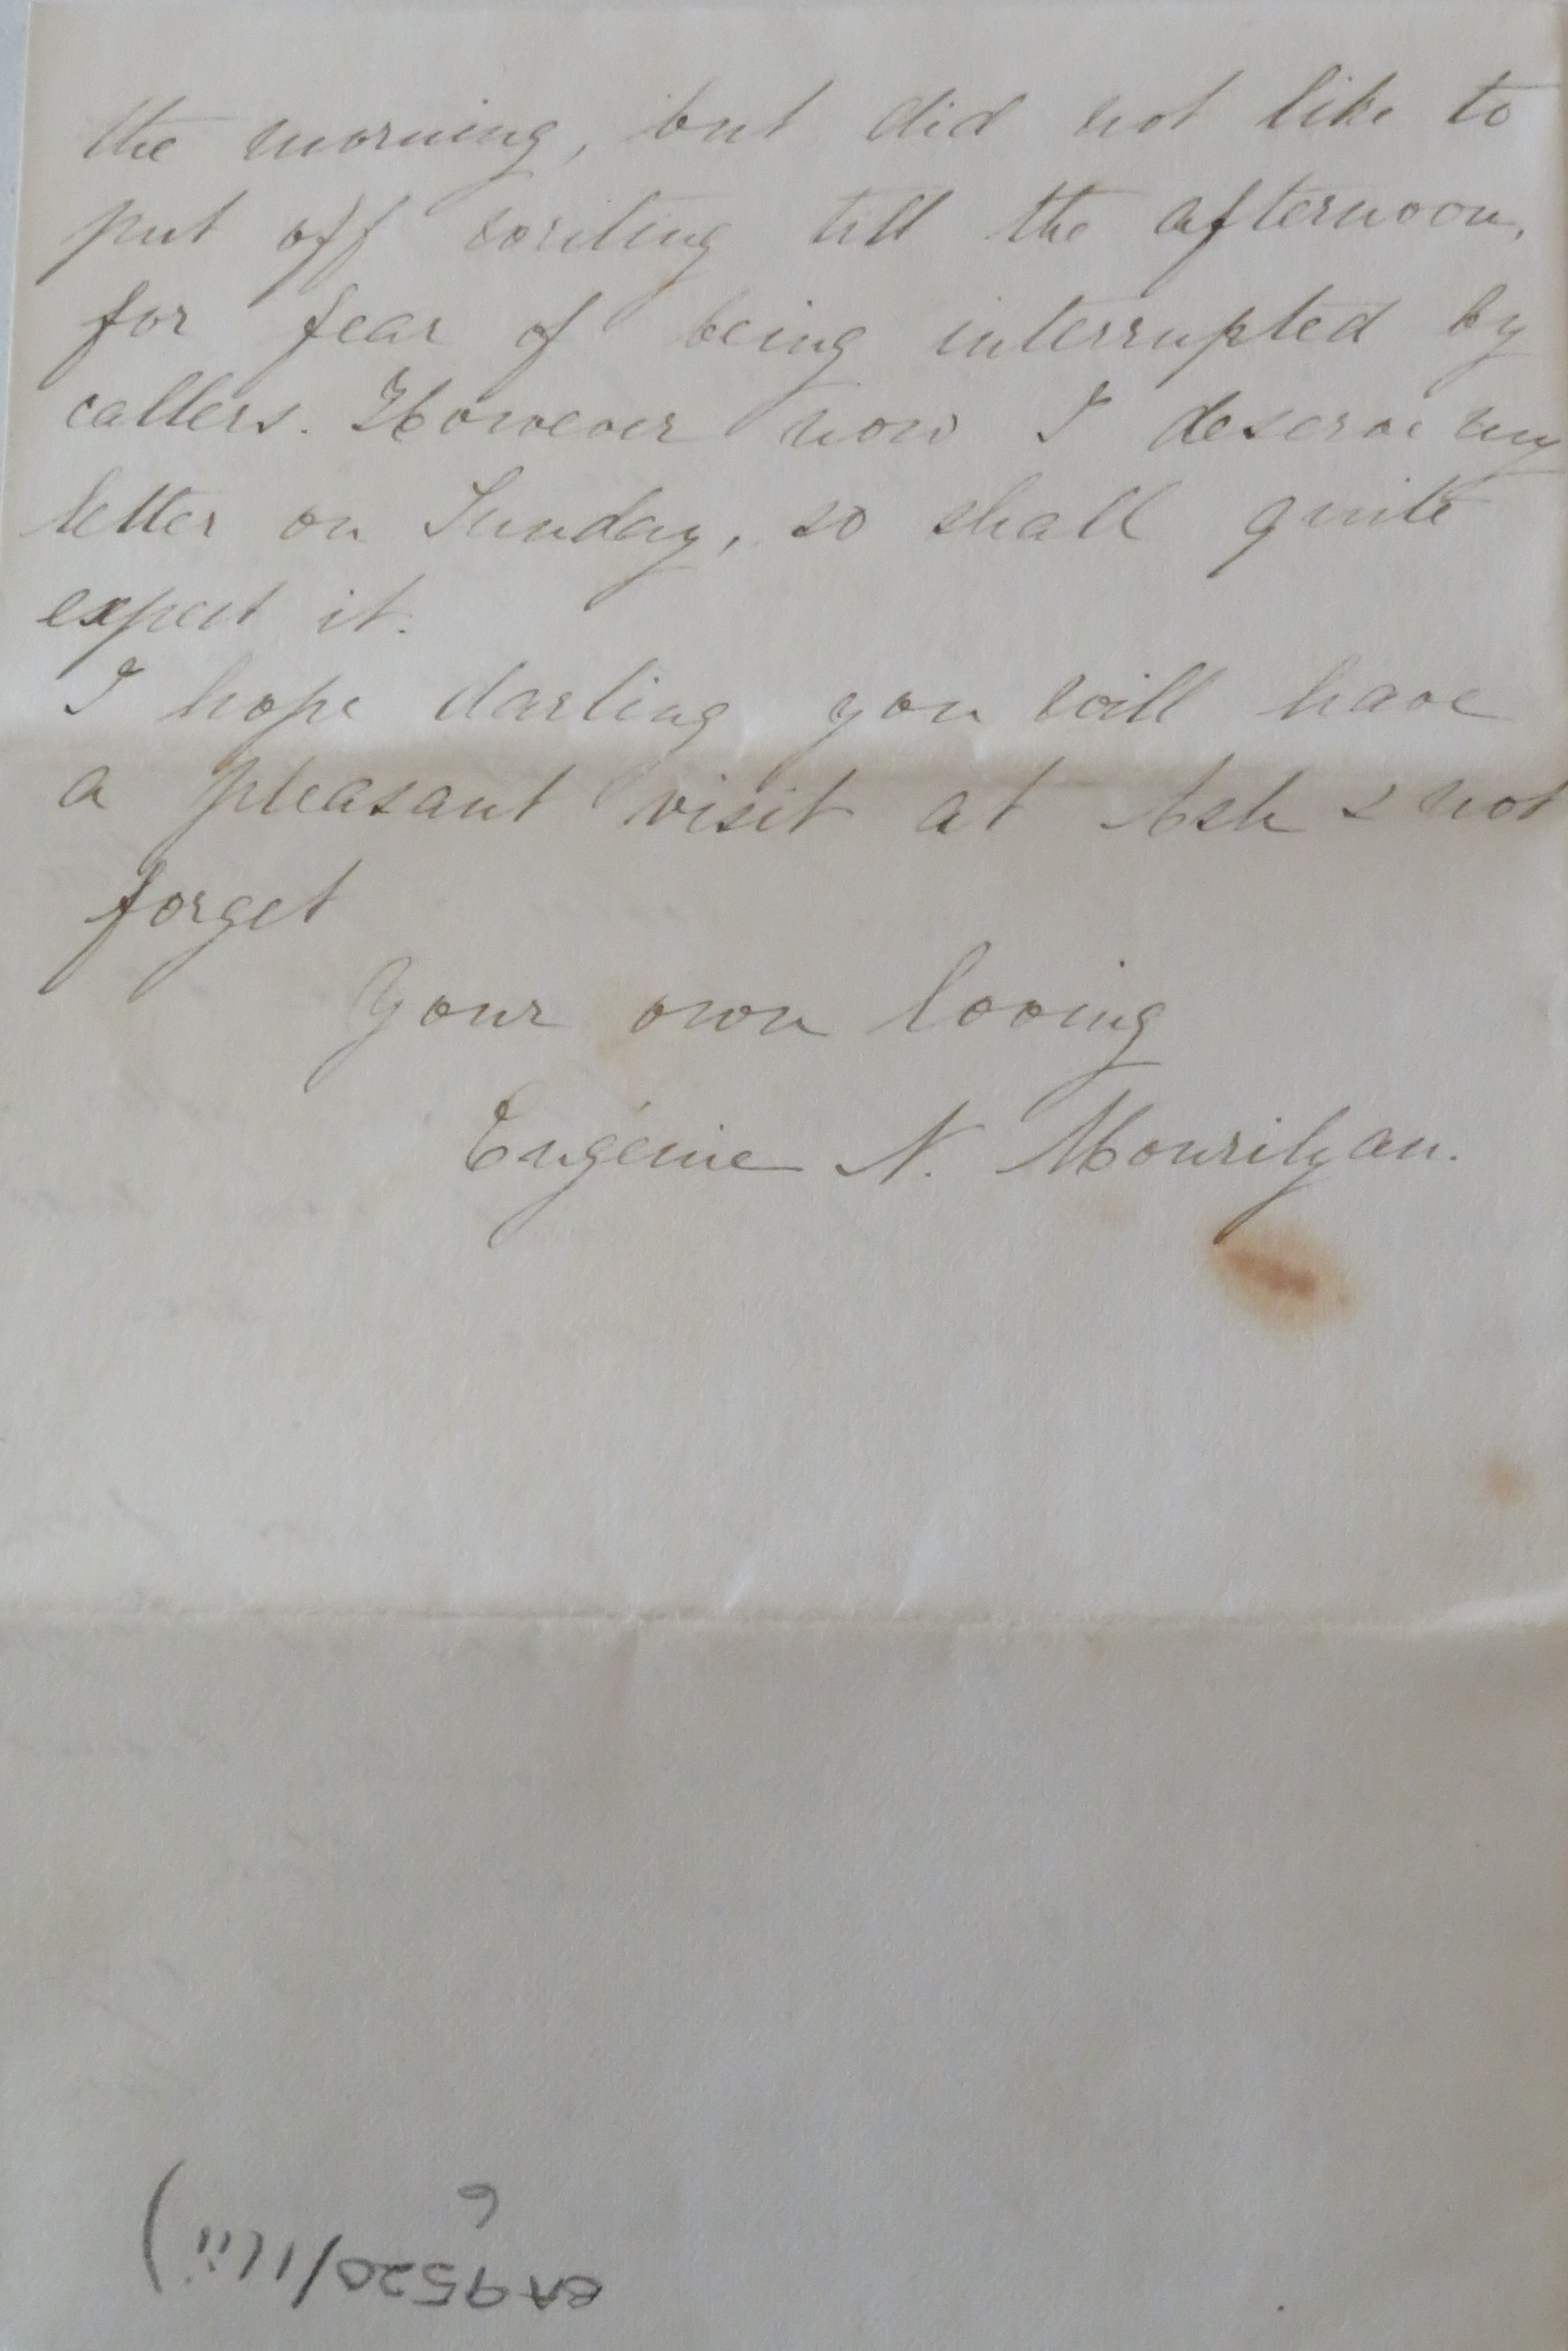 the morning, but did not like to
put off writing till the afternoon,
for fear of being interrupted by
callers. However now I deserve my
letter on Sunday, so shall quite
expect it.
I hope darling you will have
a pleasant visit at Ash & not
forget
Your own loving
Eugénie N. Mourilyan.
6